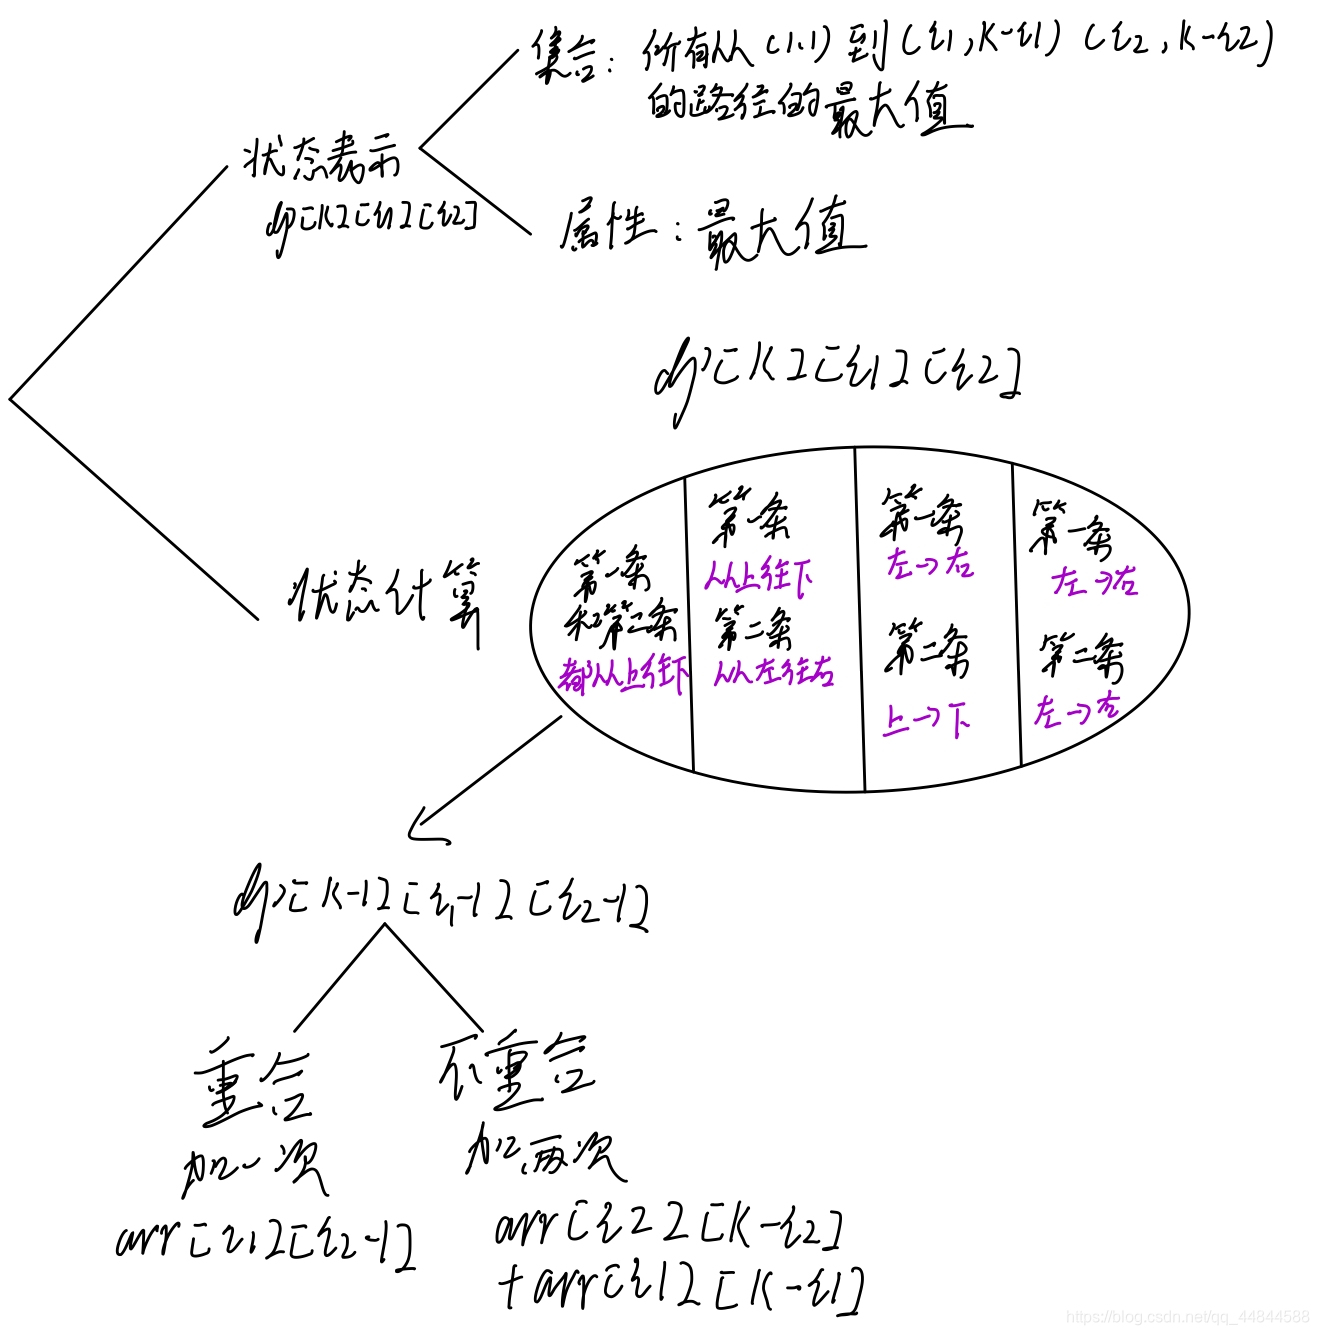 集合：所有从(1,1)到(i1,k-i1)(i2,k-i2)
的路径的最大值
状态表示
dp[k][i1][i2]
属性：最大值
dp[k][i1][i2]
状态计算
第一条
和第二条
都从上往下
第一条
从上往下
第二条
从左往右
第一条
左→右
第二条
上→下
第一条
左→右
第二条
左→右
dp[k-1][i1-1][i2-1]
重合
加一次
arr[i1][i2-1]
不重合
加两次
arr[i2][k-i2]
+arr[i1][k-i1]
https://blog.csdn.net/qq_44844588